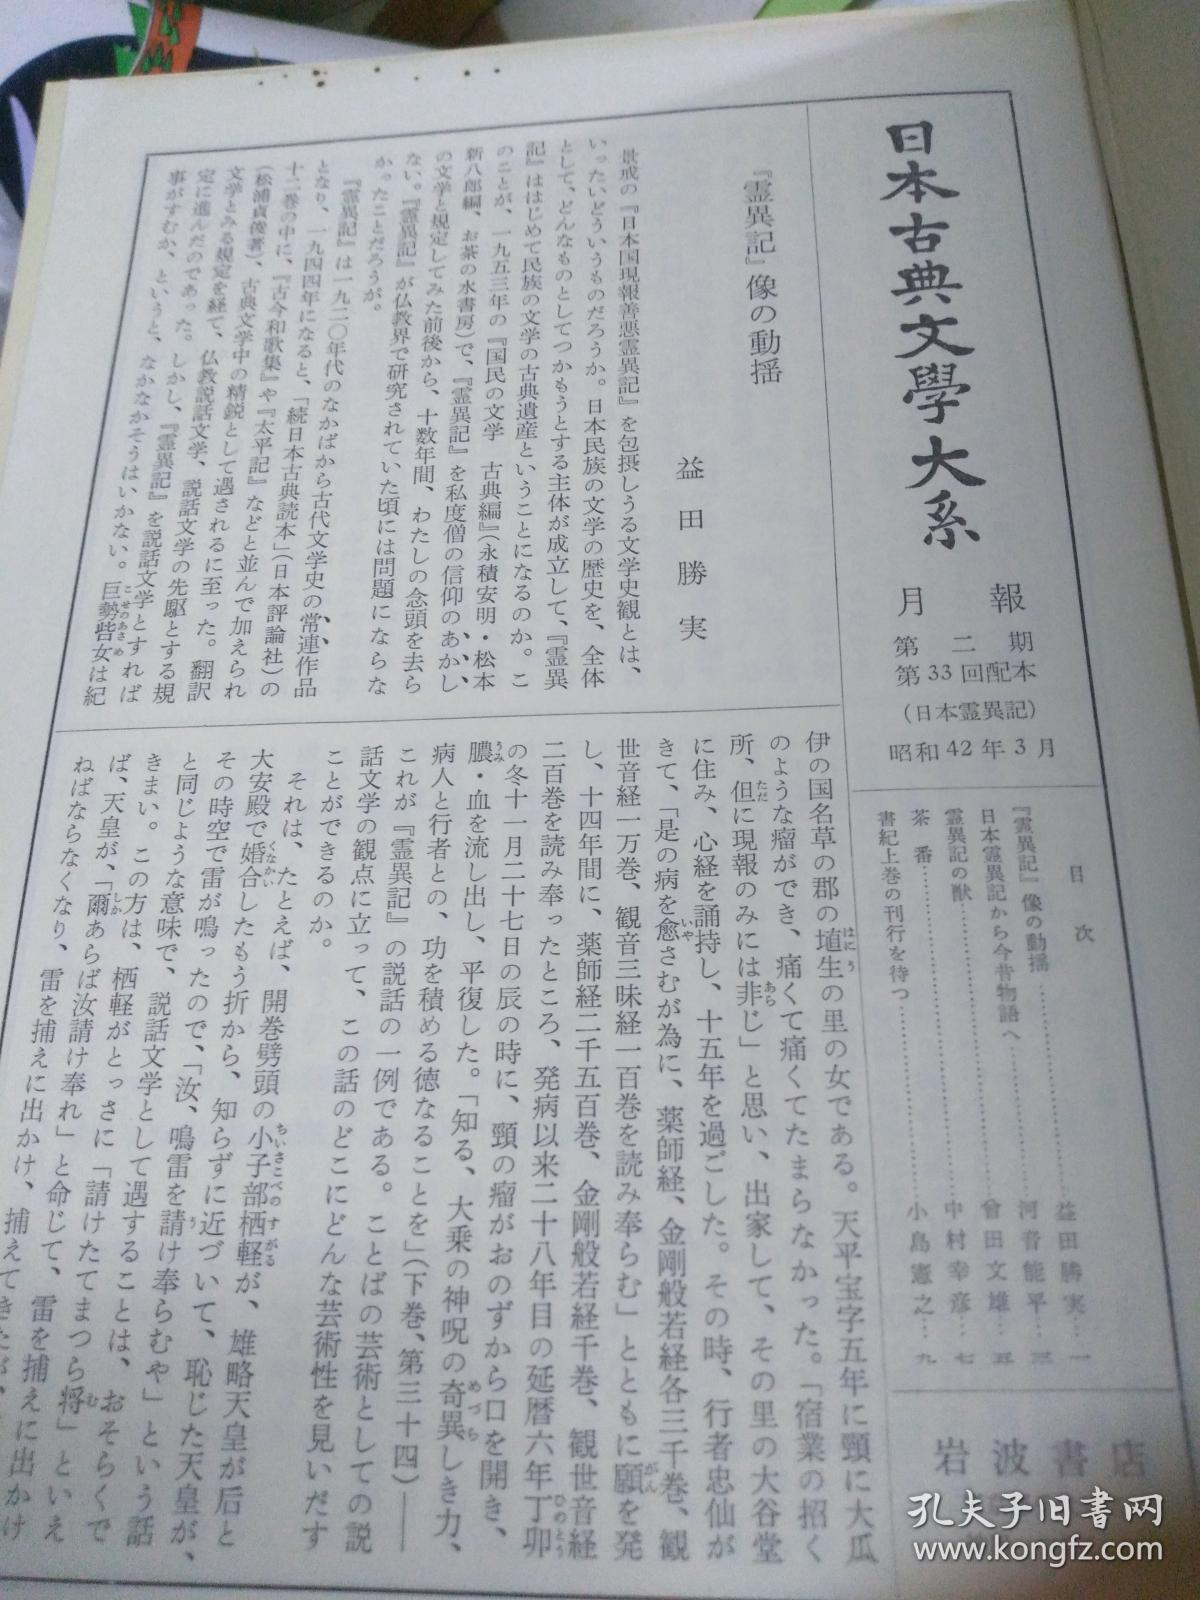 日本古典文學大系
月報
第二期
第33回配本
（日本霊異記）
昭和42年3月
目次
『霊異記』像の動揺…………益田勝実…一
日本霊異記から今昔物語へ…………河音能平…三
霊異記の獣…………曾田文雄…五
茶番…………中村幸彦…七
書紀上巻の刊行を待つ…………小島憲之…九
岩波書店
『霊異記』像の動揺
益田勝実
景戒の『日本国現報善悪霊異記』を包摂しうる文学史観とは、
いったいどういうものだろうか。日本民族の文学の歴史を、全体
として、どんなものとしてつかもうとする主体が成立して、『霊異
記』ははじめて民族の文学の古典遺産ということになるのか。こ
のことが、一九五三年の『国民の文学　古典編』（永積安明・松本
新八郎編、お茶の水書房）で、『霊異記』を私度僧の信仰のあかし
の文学と規定してみた前後から、十数年間、わたしの念頭を去ら
ない。『霊異記』が仏教界で研究されていた頃には問題にならな
かったことだろうが。
『霊異記』は一九二〇年代のなかばから古代文学史の常連作品
となり、一九四四年になると、「続日本古典読本」（日本評論社）の
十二巻の中に、『古今和歌集』や『太平記』などと並んで加えられ
（松浦貞俊著）、古典文学中の精鋭として遇されるに至った。翻訳
文学とみる規定を経て、仏教説話文学、説話文学の先駆とする規
定に進んだのであった。しかし、『霊異記』を説話文学とすれば
事がすむか、というと、なかなかそうはいかない。巨勢呰女は紀
伊の国名草の郡の埴生の里の女である。天平宝字五年に頸に大瓜
のような瘤ができ、痛くて痛くてたまらなかった。「宿業の招く
所、但に現報のみには非じ」と思い、出家して、その里の大谷堂
に住み、心経を誦持し、十五年を過ごした。その時、行者忠仙が
きて、「是の病を愈さむが為に、薬師経、金剛般若経各三千巻、観
世音経一万巻、観音三昧経一百巻を読み奉らむ」とともに願を発
し、十四年間に、薬師経二千五百巻、金剛般若経千巻、観世音経
二百巻を読み奉ったところ、発病以来二十八年目の延暦六年丁卯
の冬十一月二十七日の辰の時に、頸の瘤がおのずから口を開き、
膿・血を流し出し、平復した。「知る、大乗の神呪の奇異しき力、
病人と行者との、功を積める徳なることを」（下巻、第三十四）―
これが『霊異記』の説話の一例である。ことばの芸術としての説
話文学の観点に立って、この話のどこにどんな芸術性を見いだす
ことができるのか。
それは、たとえば、開巻劈頭の小子部栖軽が、雄略天皇が后と
大安殿で婚合したもう折から、知らずに近づいて、恥じた天皇が、
その時空で雷が鳴ったので、「汝、鳴雷を請け奉らむや」という話
と同じような意味で、説話文学として遇することは、おそらくで
きまい。この方は、栖軽がとっさに「請けたてまつら将」といえ
ば、天皇が、「爾あらば汝請け奉れ」と命じて、雷を捕えに出かけ
ねばならなくなり、雷を捕えに出かけ、捕えてきたが、